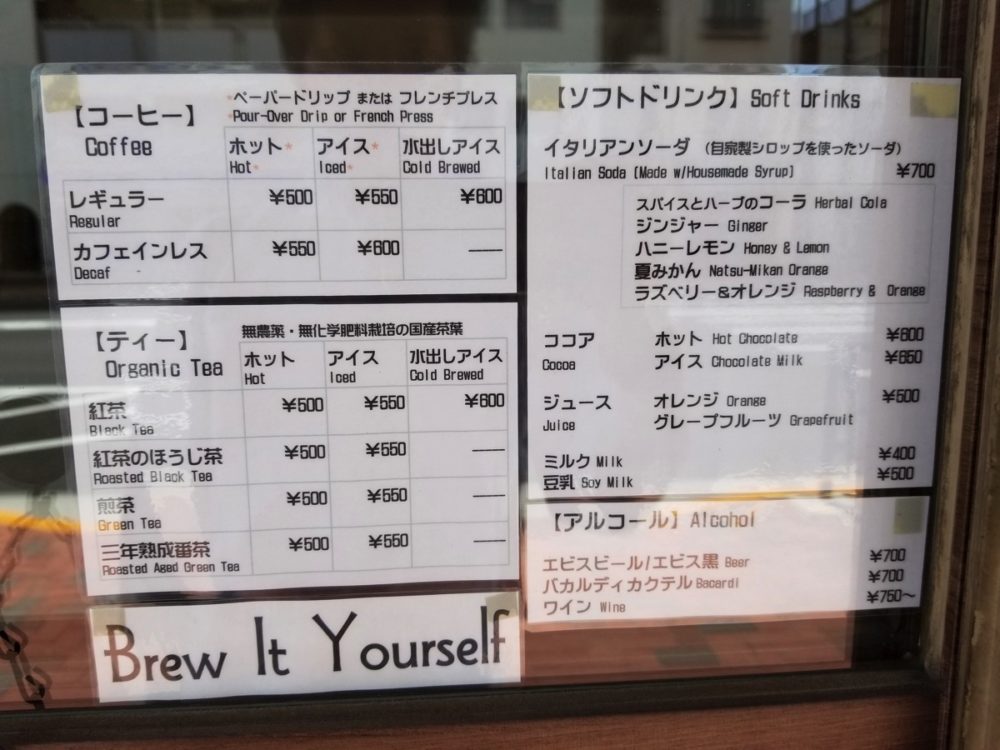 【コーヒー】
Coffee
*ペーパードリップ または フレンチプレス
*Pour-Over Drip or French Press
ホット* アイス* 水出しアイス
Hot* Iced* Cold Brewed
レギュラー ¥500 ¥550 ¥600
Regular
カフェインレス ¥550 ¥600 ——
Decaf
【ティー】
Organic Tea
無農薬・無化学肥料栽培の国産茶葉
ホット アイス 水出しアイス
Hot Iced Cold Brewed
紅茶 ¥500 ¥550 ¥600
Black Tea
紅茶のほうじ茶 ¥500 ¥550 ——
Roasted Black Tea
煎茶 ¥500 ¥550 ——
Green Tea
三年熟成番茶 ¥500 ¥550 ——
Roasted Aged Green Tea
Brew It Yourself
【ソフトドリンク】Soft Drinks
イタリアンソーダ (自家製シロップを使ったソーダ)
Italian Soda [Made w/Housemade Syrup] ¥700
スパイスとハーブのコーラ Herbal Cola
ジンジャー Ginger
ハニーレモン Honey & Lemon
夏みかん Natsu-Mikan Orange
ラズベリー&オレンジ Raspberry & Orange
ココア ホット Hot Chocolate ¥600
Cocoa アイス Chocolate Milk ¥650
ジュース オレンジ Orange ¥500
Juice グレープフルーツ Grapefruit
ミルク Milk ¥400
豆乳 Soy Milk ¥500
【アルコール】Alcohol
エビスビール/エビス黒 Beer ¥700
バカルディカクテル Bacardi ¥700
ワイン Wine ¥750~